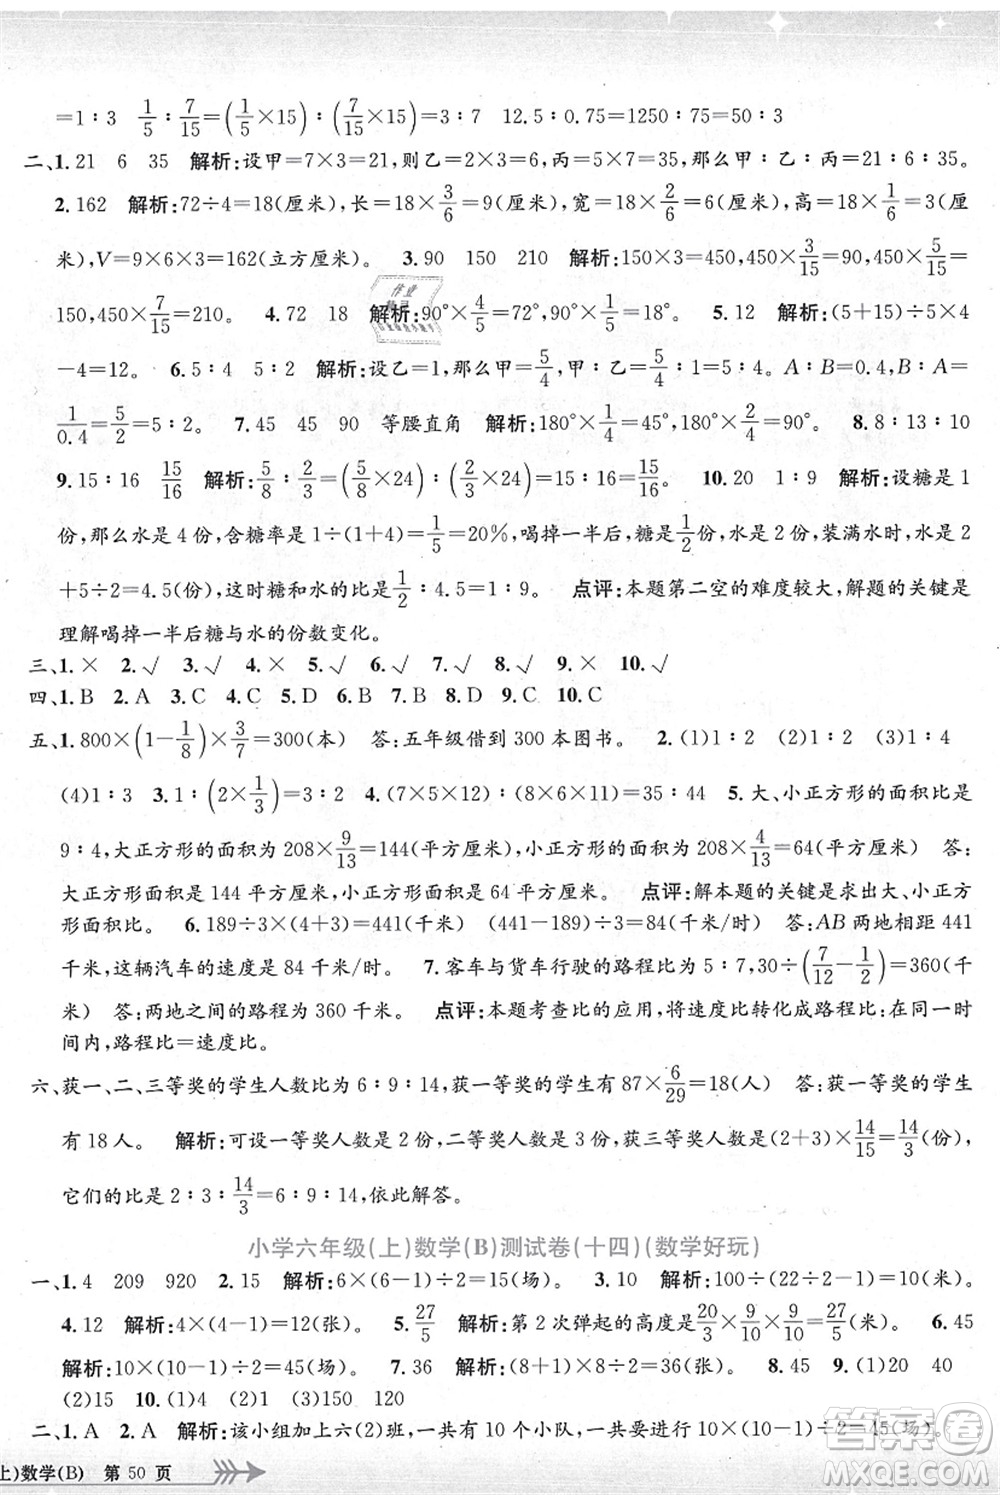 =1∶3　1/5∶7/15=(1/5×15)∶(7/15×15)=3∶7　12.5∶0.75=1250∶75=50∶3
二、1.21　6　35　解析:设甲=7×3=21,则乙=2×3=6,丙=5×7=35,那么甲∶乙∶丙=21∶6∶35。
2.162　解析:72÷4=18(厘米),长=18×3/6=9(厘米),宽=18×2/6=6(厘米),高=18×1/6=3(厘
米),V=9×6×3=162(立方厘米)。　3.90　150　210　解析:150×3=450,450×3/15=90,450×5/15=
150,450×7/15=210。　4.72　18　解析:90°×4/5=72°,90°×1/5=18°。　5.12　解析:(5+15)÷5×4
-4=12。　6.5∶4　5∶2　解析:设乙=1,那么甲=5/4,甲∶乙=5/4∶1=5∶4。A∶B=0.4,B∶A=
1/0.4=5/2=5∶2。　7.45　45　等腰直角　解析:180°×1/4=45°,180°×2/4=90°。　8.8∶13∶10
9.15∶16　15/16　解析:5/8∶2/3=(5/8×24)∶(2/3×24)=15∶16=15/16。　10.20　1∶9　解析:设糖是1
份,那么水是 4 份,含糖率是1÷(1+4)=1/5=20%,喝掉一半后,糖是1/2份,水是 2 份,装满水时,水是 2
+5÷2=4.5(份),这时糖和水的比是1/2∶4.5=1∶9。　点评:本题第二空的难度较大,解题的关键是
理解喝掉一半后糖与水的份数变化。
三、1.×　2.√　3.√　4.×　5.√　6.√　7.√　8.√　9.×　10.√
四、1.B　2.A　3.C　4.C　5.D　6.B　7.D　8.D　9.C　10.C
五、1.800×(1-1/8)×3/7=300(本)　答:五年级借到 300 本图书。　2.(1)1∶2　(2)1∶2　(3)1∶4
(4)1∶3　3.1∶(2×1/3)=3∶2　4.(7×5×12)∶(12×4×11)=35∶44　5.大、小正方形的面积比是
9∶4,大正方形的面积为 208×9/13=144(平方厘米),小正方形的面积为 208×4/13=64(平方厘米)　答:
大正方形面积是 144 平方厘米,小正方形面积是 64 平方厘米。　点评:解本题的关键是求出大、小正方
形面积的比。　6.189÷3×(4+3)=441(千米)　(441-189)÷3=84(千米/时)　答:AB 两地相距 441
千米,这辆汽车的速度是 84 千米/时。　7.客车与货车行驶的路程比为 5∶7,30÷(7/12-1/2)=360(千
米)　答:两地之间的路程是 360 千米。　点评:本题考查比的应用,将速度比转化成路程比,同一时
间内,路程比=速度比。
六、获一、二、三等奖的学生人数比为 6∶9∶14,获一等奖的学生有 87×6/29=18(人)　答:获一等奖的学生
有 18 人。　解析:可设一等奖人数是 2 份,二等奖人数是 3 份,获三等奖人数是(2+3)×14/15=14/3(份),
它们的比是 2∶3∶14/3=6∶9∶14,依此解答。
小学六年级(上)数学(B)测试卷(十四)(数学好玩)
一、1.4　209　920　2.15　解析:6×(6-1)÷2=15(场)。　3.10　解析:5×(5-1)÷2=10(米)。
4.12　解析:4×(4-1)=12(张)。　5.27/5　解析:第 2 次弹起的高度是20/3×9/10×9/10=27/5(米)。　6.45
解析:10×(10-1)÷2=45(场)。　7.36　解析:(8+1)×8÷2=36(张)。　8.45　9.(1)20　40
(2)15　10.(1)4　(2)1　(3)150　120
二、1.A　2.A　解析:该小组加上六(2)班,一共有 10 个小队,一共要进行 10×(10-1)÷2=45(场)。
上)数学(B)　第 50 页
作业
答案卷
MXQE.COM